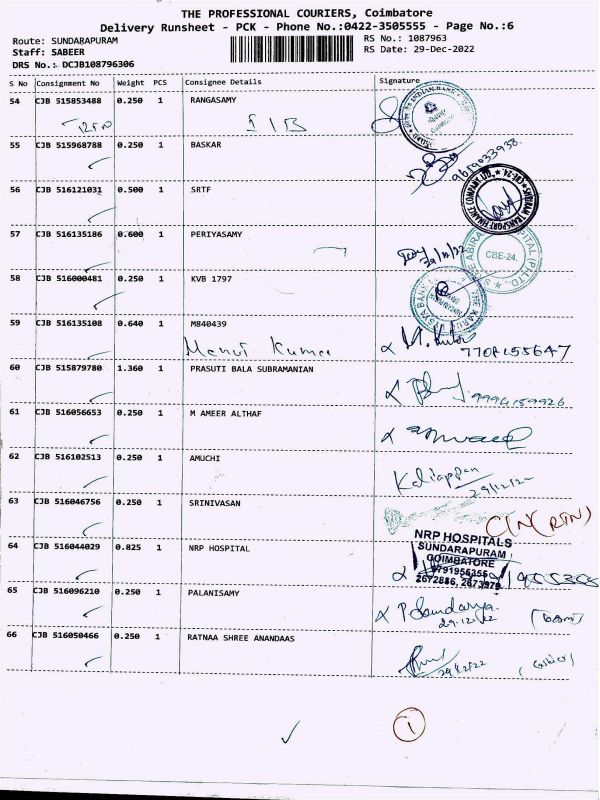 THE PROFESSIONAL COURIERS, Coimbatore
Delivery Runsheet - PCK - Phone No.:0422-3505555 - Page No.:6
Route: SUNDARAPURAM
RS No.: 1087963
Staff: SABEER
RS Date: 29-Dec-2022
DRS No.: DCJB108796306
S No Consignment No Weight PCS Consignee Details Signature
54 CJB 515853488 0.250 1 RANGASAMY
RTN SIB
55 CJB 515968788 0.250 1 BASKAR
9659033938
56 CJB 516121031 0.500 1 SRTF
57 CJB 516135186 0.600 1 PERIYASAMY
29/12/22
CBE-24.
58 CJB 516000481 0.250 1 KVB 1797
59 CJB 516135108 0.640 1 M840439
Kumar
7708155647
60 CJB 515879780 1.360 1 PRASUTI BALA SUBRAMANIAN
9994159926
61 CJB 516056653 0.250 1 M AMEER ALTHAF
62 CJB 516102513 0.250 1 AMUCHI
Kaliappan
29/12/22
63 CJB 516046756 0.250 1 SRINIVASAN
C/N (RTN)
64 CJB 516044029 0.825 1 NRP HOSPITAL
NRP HOSPITALS
SUNDARAPURAM
COIMBATORE
65 CJB 516096210 0.250 1 PALANISAMY
P Soundarya
29.12.22
66 CJB 516050466 0.250 1 RATNAA SHREE ANANDAAS
29/12/22
1